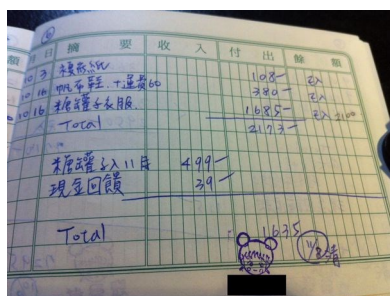 日 摘 要 收 入 付 出 餘 額
10 3 108-
10 16 帆布鞋.+運費60 380- 已入
10 16 糖罐子衣服 1685- 已入 2100
Total 2173-
糖罐子入11月 499-
現金回饋 39-
Total = 1635 11/8清